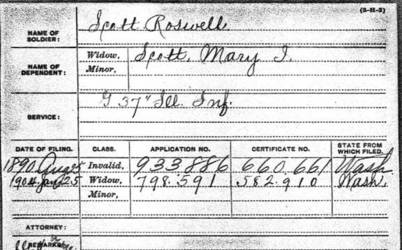 (3-II-3)
NAME OF SOLDIER: Scott Roswell
NAME OF DEPENDENT: Widow, Scott, Mary I.
Minor,
SERVICE: G 37" Ill. Inf.
DATE OF FILING. CLASS. APPLICATION NO. CERTIFICATE NO. STATE FROM WHICH FILED.
1890 Invalid, 933886 660.661 Wash
1904 Jan 25 Widow, 798.591 582.910 Wash.
Minor,
ATTORNEY:
REMARKS: